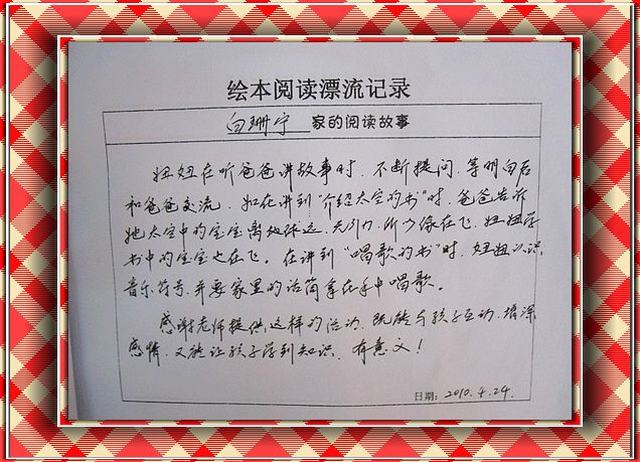 绘本阅读漂流记录
白珊宁 家的阅读故事
妞妞在听爸爸讲故事时，不断提问，等明白后
和爸爸交流。如在讲到“介绍太空的书”时，爸爸告诉
她太空中的宝宝离地球远，无引力，所以像在飞。妞妞
书中的宝宝也在飞。在讲到“唱歌的书”时，妞妞认识
音乐符号，并要家里的话筒拿在手中唱歌。
感谢老师提供这样的活动，既能与孩子互动，增深
感情，又能让孩子学到知识，有意义！
日期：2010.4.24.